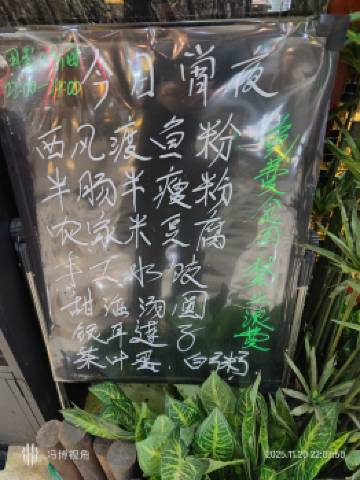 今日宵夜
22:00-24:00
西风渡鱼粉
半肠半瘦粉
农家米豆腐
手工水饺
甜酒汤圆
银耳莲子
茶叶蛋.白粥
免费食用
冯博视角
2025.11.20 22:03:50